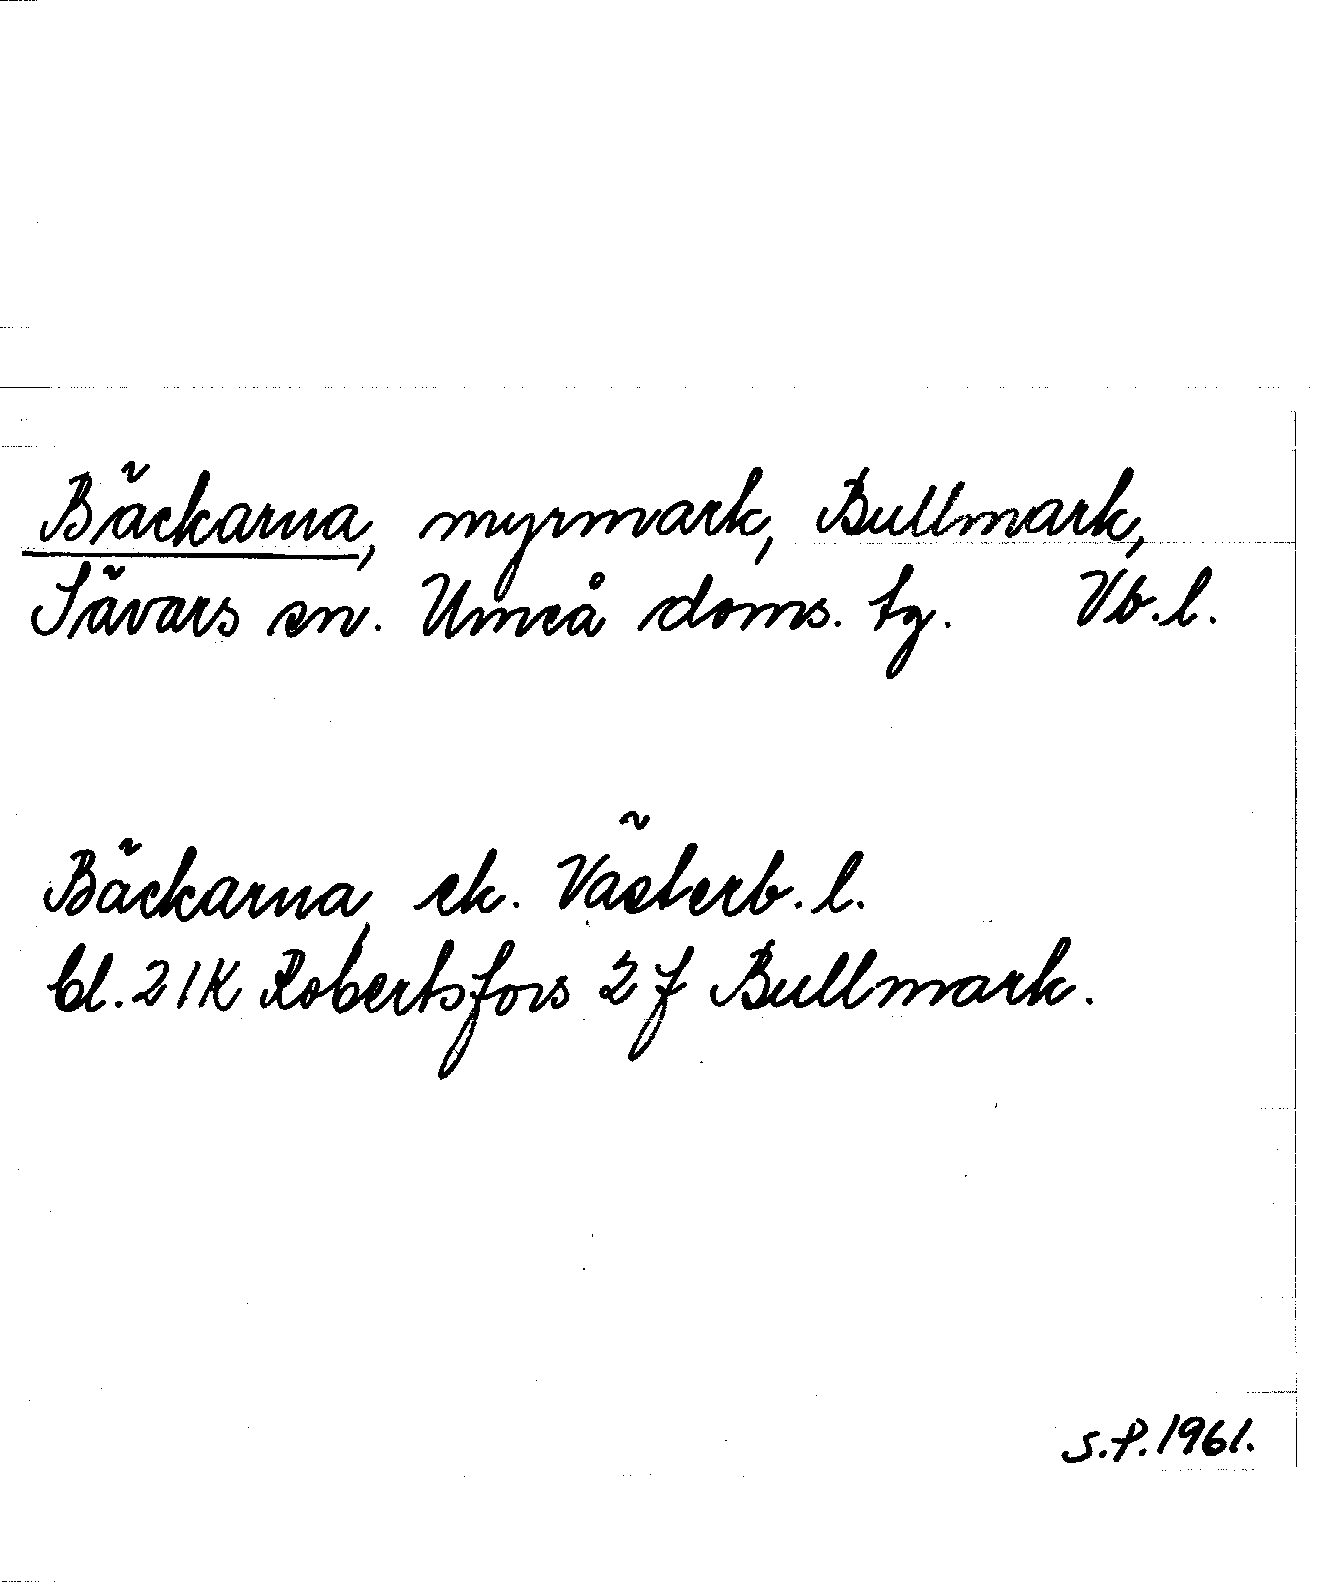 Bäckarna, myrmark, Bullmark,
Sävars sn. Umeå doms. tg. Vb.l.
Bäckarna, ek. Västerb.l.
bl. 21K Robertsfors 2f Bullmark.
S.P. 1961.